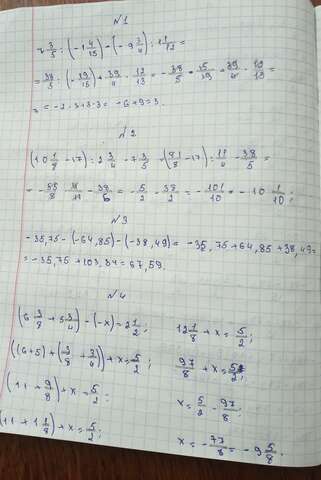 №1
7 3/5 : (-1 4/15) - (-9 3/4) : 1 1/12 =
= 38/5 : (-19/15) + 39/4 · 12/13 = - 38/5 · 15/19 + 39/4 · 12/13 =
= -2 · 3 + 3 · 3 = -6 + 9 = 3.
№2
(10 1/8 - 17) : 2 3/4 - 7 3/5 = (81/8 - 17) : 11/4 - 38/5 =
= - 55/8 · 4/11 - 38/5 = - 5/2 - 38/5 = - 101/10 = -10 1/10;
№3
-35,75 - (-64,85) - (-38,49) = -35,75 + 64,85 + 38,49 =
= -35,75 + 103,34 = 67,59.
№4
(6 3/8 + 5 3/4) - (-x) = 2 1/2;
((6+5) + (3/8 + 3/4)) + x = 5/2;
(11 + 9/8) + x = 5/2;
(11 + 1 1/8) + x = 5/2;
12 1/8 + x = 5/2;
97/8 + x = 5/2;
x = 5/2 - 97/8;
x = - 77/8 = -9 5/8.